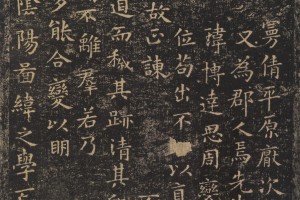 曼倩平原厭次
又為郡人焉先
瑋博達思周變
位苟出不 以直
故正諫
道而穢其跡清其
不離羣若乃
多能合變以明
陰陽啚緯之學